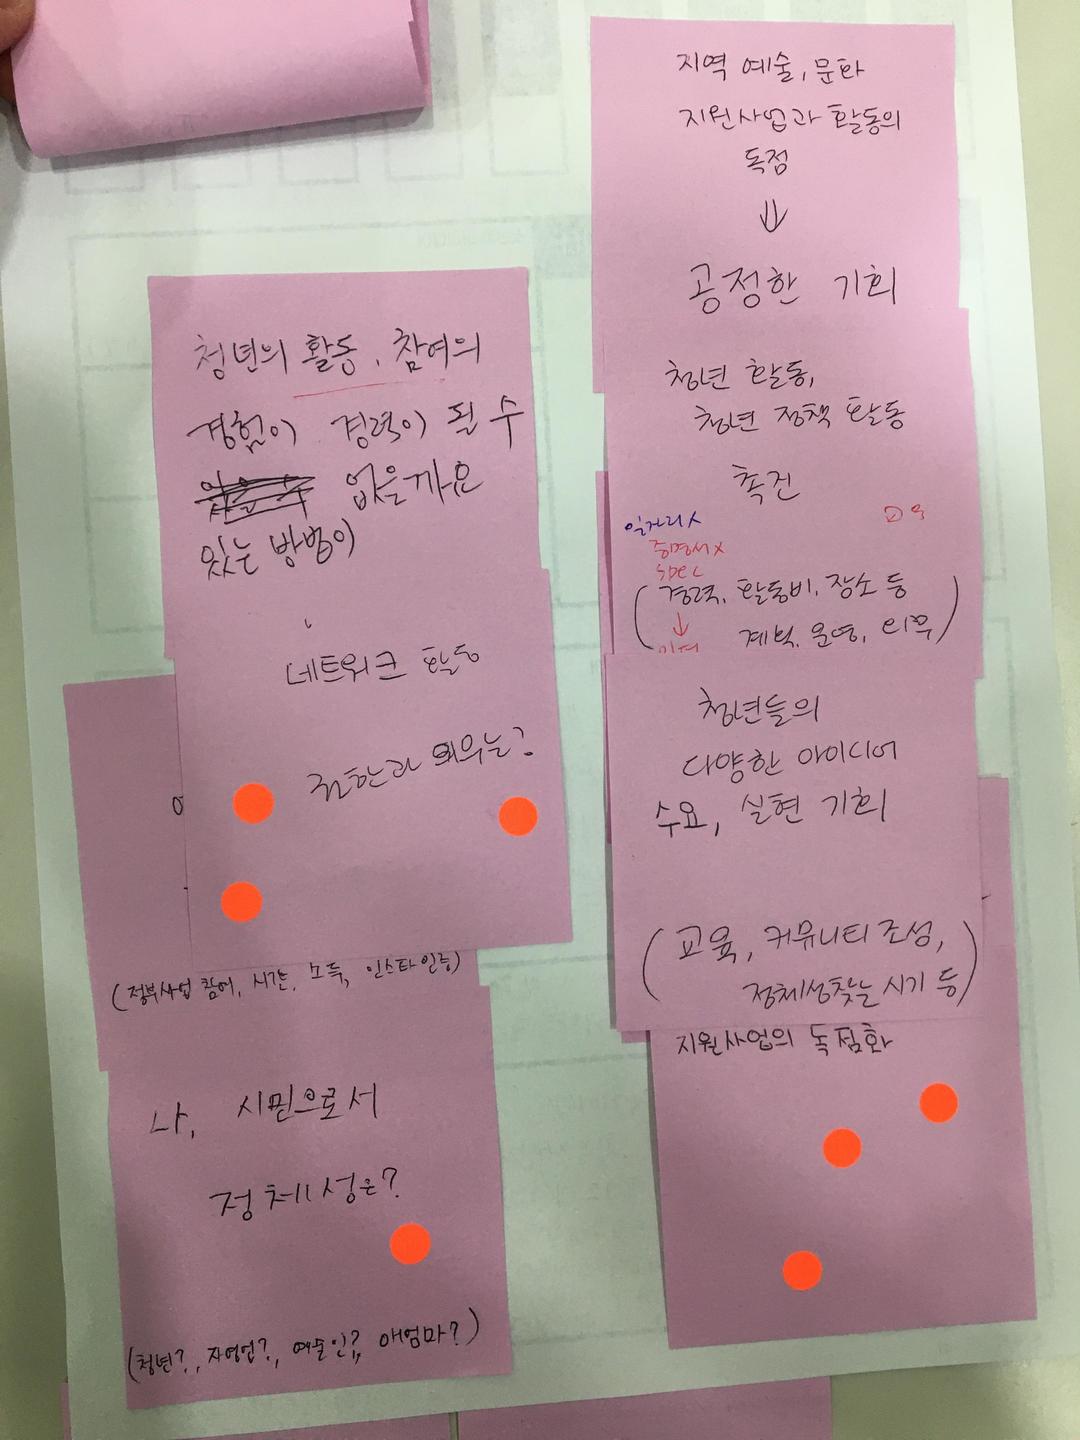 청년의 활동, 참여의
경험이 경력이 될 수
없을까요
있는 방법이
네트워크 활동
권한과 의무는?
(정부사업 참여, 시간, 소득, 인스타일등)
나, 시민으로서
정체성은?
(청년?, 자영업?, 예술인?, 애엄마?)
지역 예술, 문화
지원사업과 활동의
독점
⇓
공정한 기회
청년 활동,
청년 정책 활동
촉진
일거리 X
증명서 X
교육
(경력, 활동비, 장소 등
↓ 계획, 운영, 의무
청년들의
다양한 아이디어
수요, 실현 기회
(교육, 커뮤니티 조성,
정체성찾는 시기 등)
지원사업의 독점화